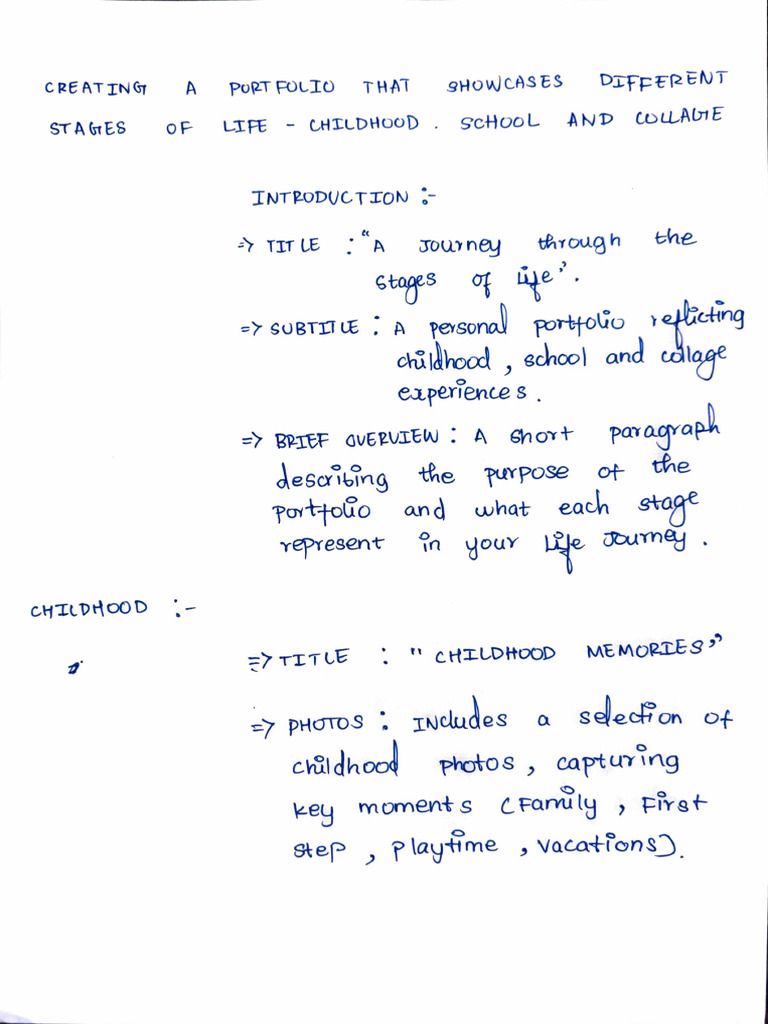 CREATING A PORTFOLIO THAT SHOWCASES DIFFERENT
STAGES OF LIFE - CHILDHOOD. SCHOOL AND COLLAGE
INTRODUCTION :-
=> TITLE : "A Journey through the
stages of life".
=> SUBTITLE : A personal portfolio reflicting
childhood, school and collage
experiences.
=> BRIEF OVERVIEW : A short paragraph
describing the purpose of the
portfolio and what each stage
represent in your life Journey.
CHILDHOOD :-
=> TITLE : "CHILDHOOD MEMORIES"
=> PHOTOS : INcludes a selection of
childhood photos, capturing
key moments (Family, First
step, playtime, vacations).